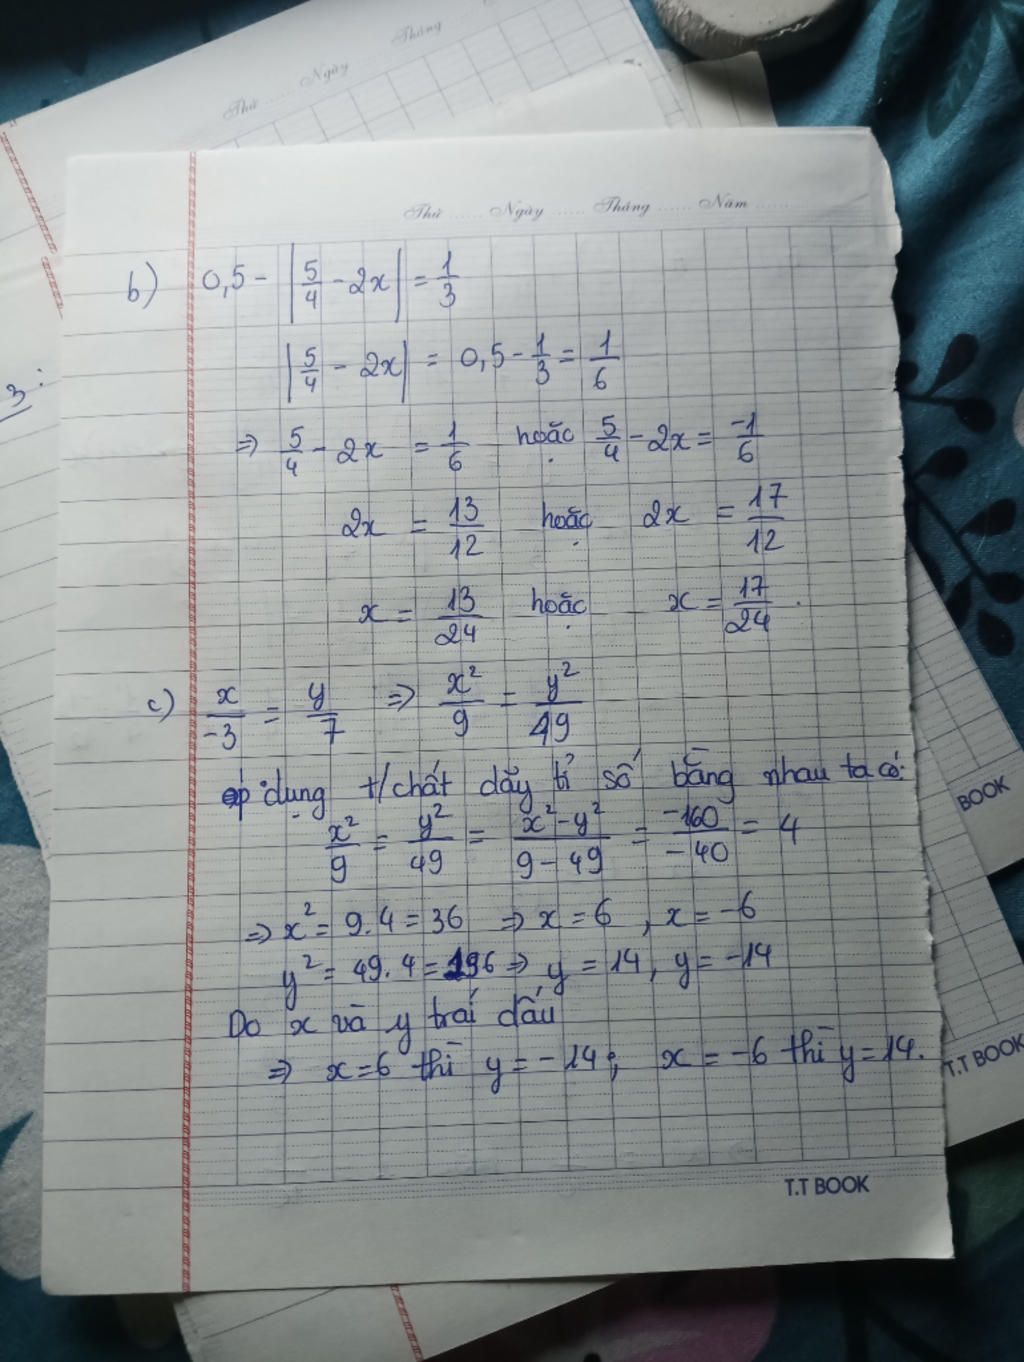 Tháng
Ngày
Thứ
Thứ ...... Ngày ...... Tháng ...... Năm ......
b) 0,5 - |5/4 - 2x| = 1/3
|5/4 - 2x| = 0,5 - 1/3 = 1/6
3:
=> 5/4 - 2x = 1/6 hoặc 5/4 - 2x = -1/6
2x = 13/12 hoặc 2x = 17/12
x = 13/24 hoặc x = 17/24.
c) x/-3 = y/7 => x²/9 = y²/49
áp dụng t/chất dãy tỉ số bằng nhau ta có:
x²/9 = y²/49 = x²-y²/9-49 = -160/-40 = 4
=> x² = 9.4 = 36 => x = 6, x = -6
y² = 49.4 = 196 => y = 14, y = -14
Do x và y trái dấu
=> x = 6 thì y = -14; x = -6 thì y = 14.
T.T BOOK
BOOK
T.T BOOK